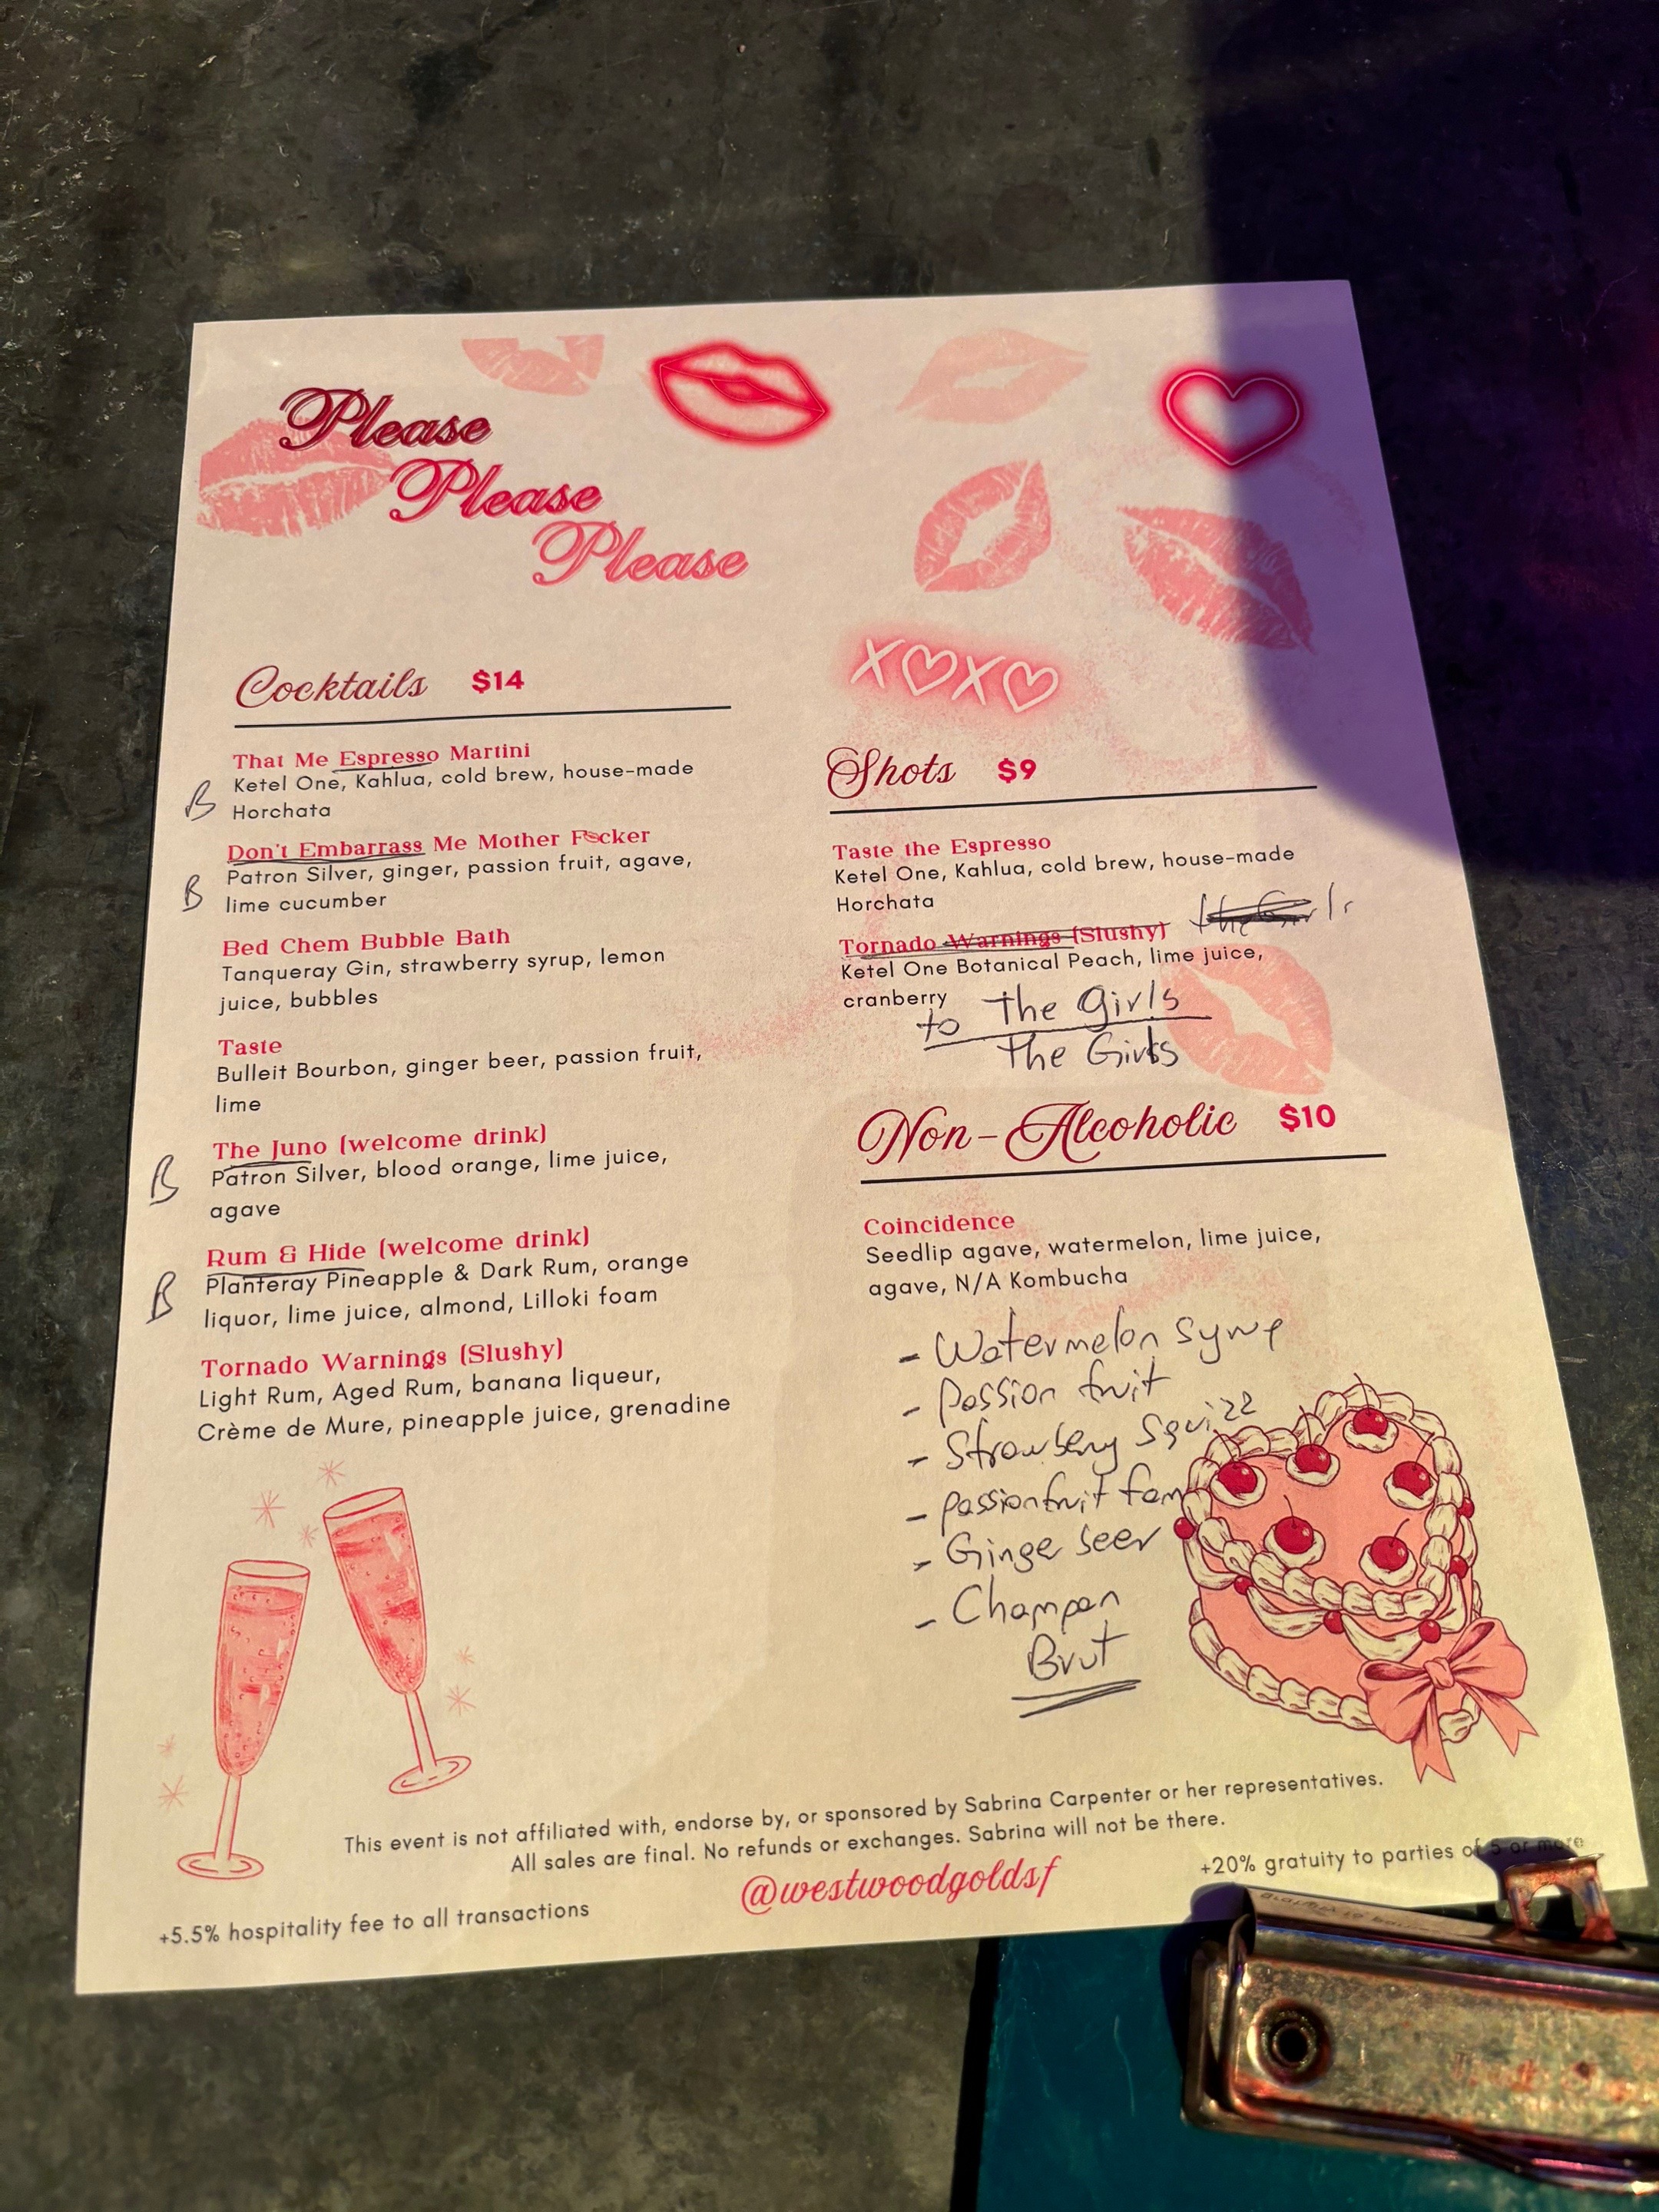 Please
Please
Please
Cocktails $14
That Me Espresso Martini
Ketel One, Kahlua, cold brew, house-made
Horchata
B
Don't Embarrass Me Mother F cker
Patron Silver, ginger, passion fruit, agave,
lime cucumber
B
Bed Chem Bubble Bath
Tanqueray Gin, strawberry syrup, lemon
juice, bubbles
Taste
Bulleit Bourbon, ginger beer, passion fruit,
lime
The Juno (welcome drink)
Patron Silver, blood orange, lime juice,
agave
B
Rum & Hide (welcome drink)
Planteray Pineapple & Dark Rum, orange
liquor, lime juice, almond, Lilloki foam
B
Tornado Warnings (Slushy)
Light Rum, Aged Rum, banana liqueur,
Crème de Mure, pineapple juice, grenadine
XOXO
Shots $9
Taste the Espresso
Ketel One, Kahlua, cold brew, house-made
Horchata
Tornado Warnings (Slushy)
Ketel One Botanical Peach, lime juice,
cranberry
to The Girls
The Girls
Non-Alcoholic $10
Coincidence
Seedlip agave, watermelon, lime juice,
agave, N/A Kombucha
- Watermelon
- Passion fruit
- Strawberry
- passionfruit
- Ginge beer
- Champan
Brut
This event is not affiliated with, endorse by, or sponsored by Sabrina Carpenter or her representatives.
All sales are final. No refunds or exchanges. Sabrina will not be there.
@westwoodgoldsf
+20% gratuity to parties of 5 or more
+5.5% hospitality fee to all transactions